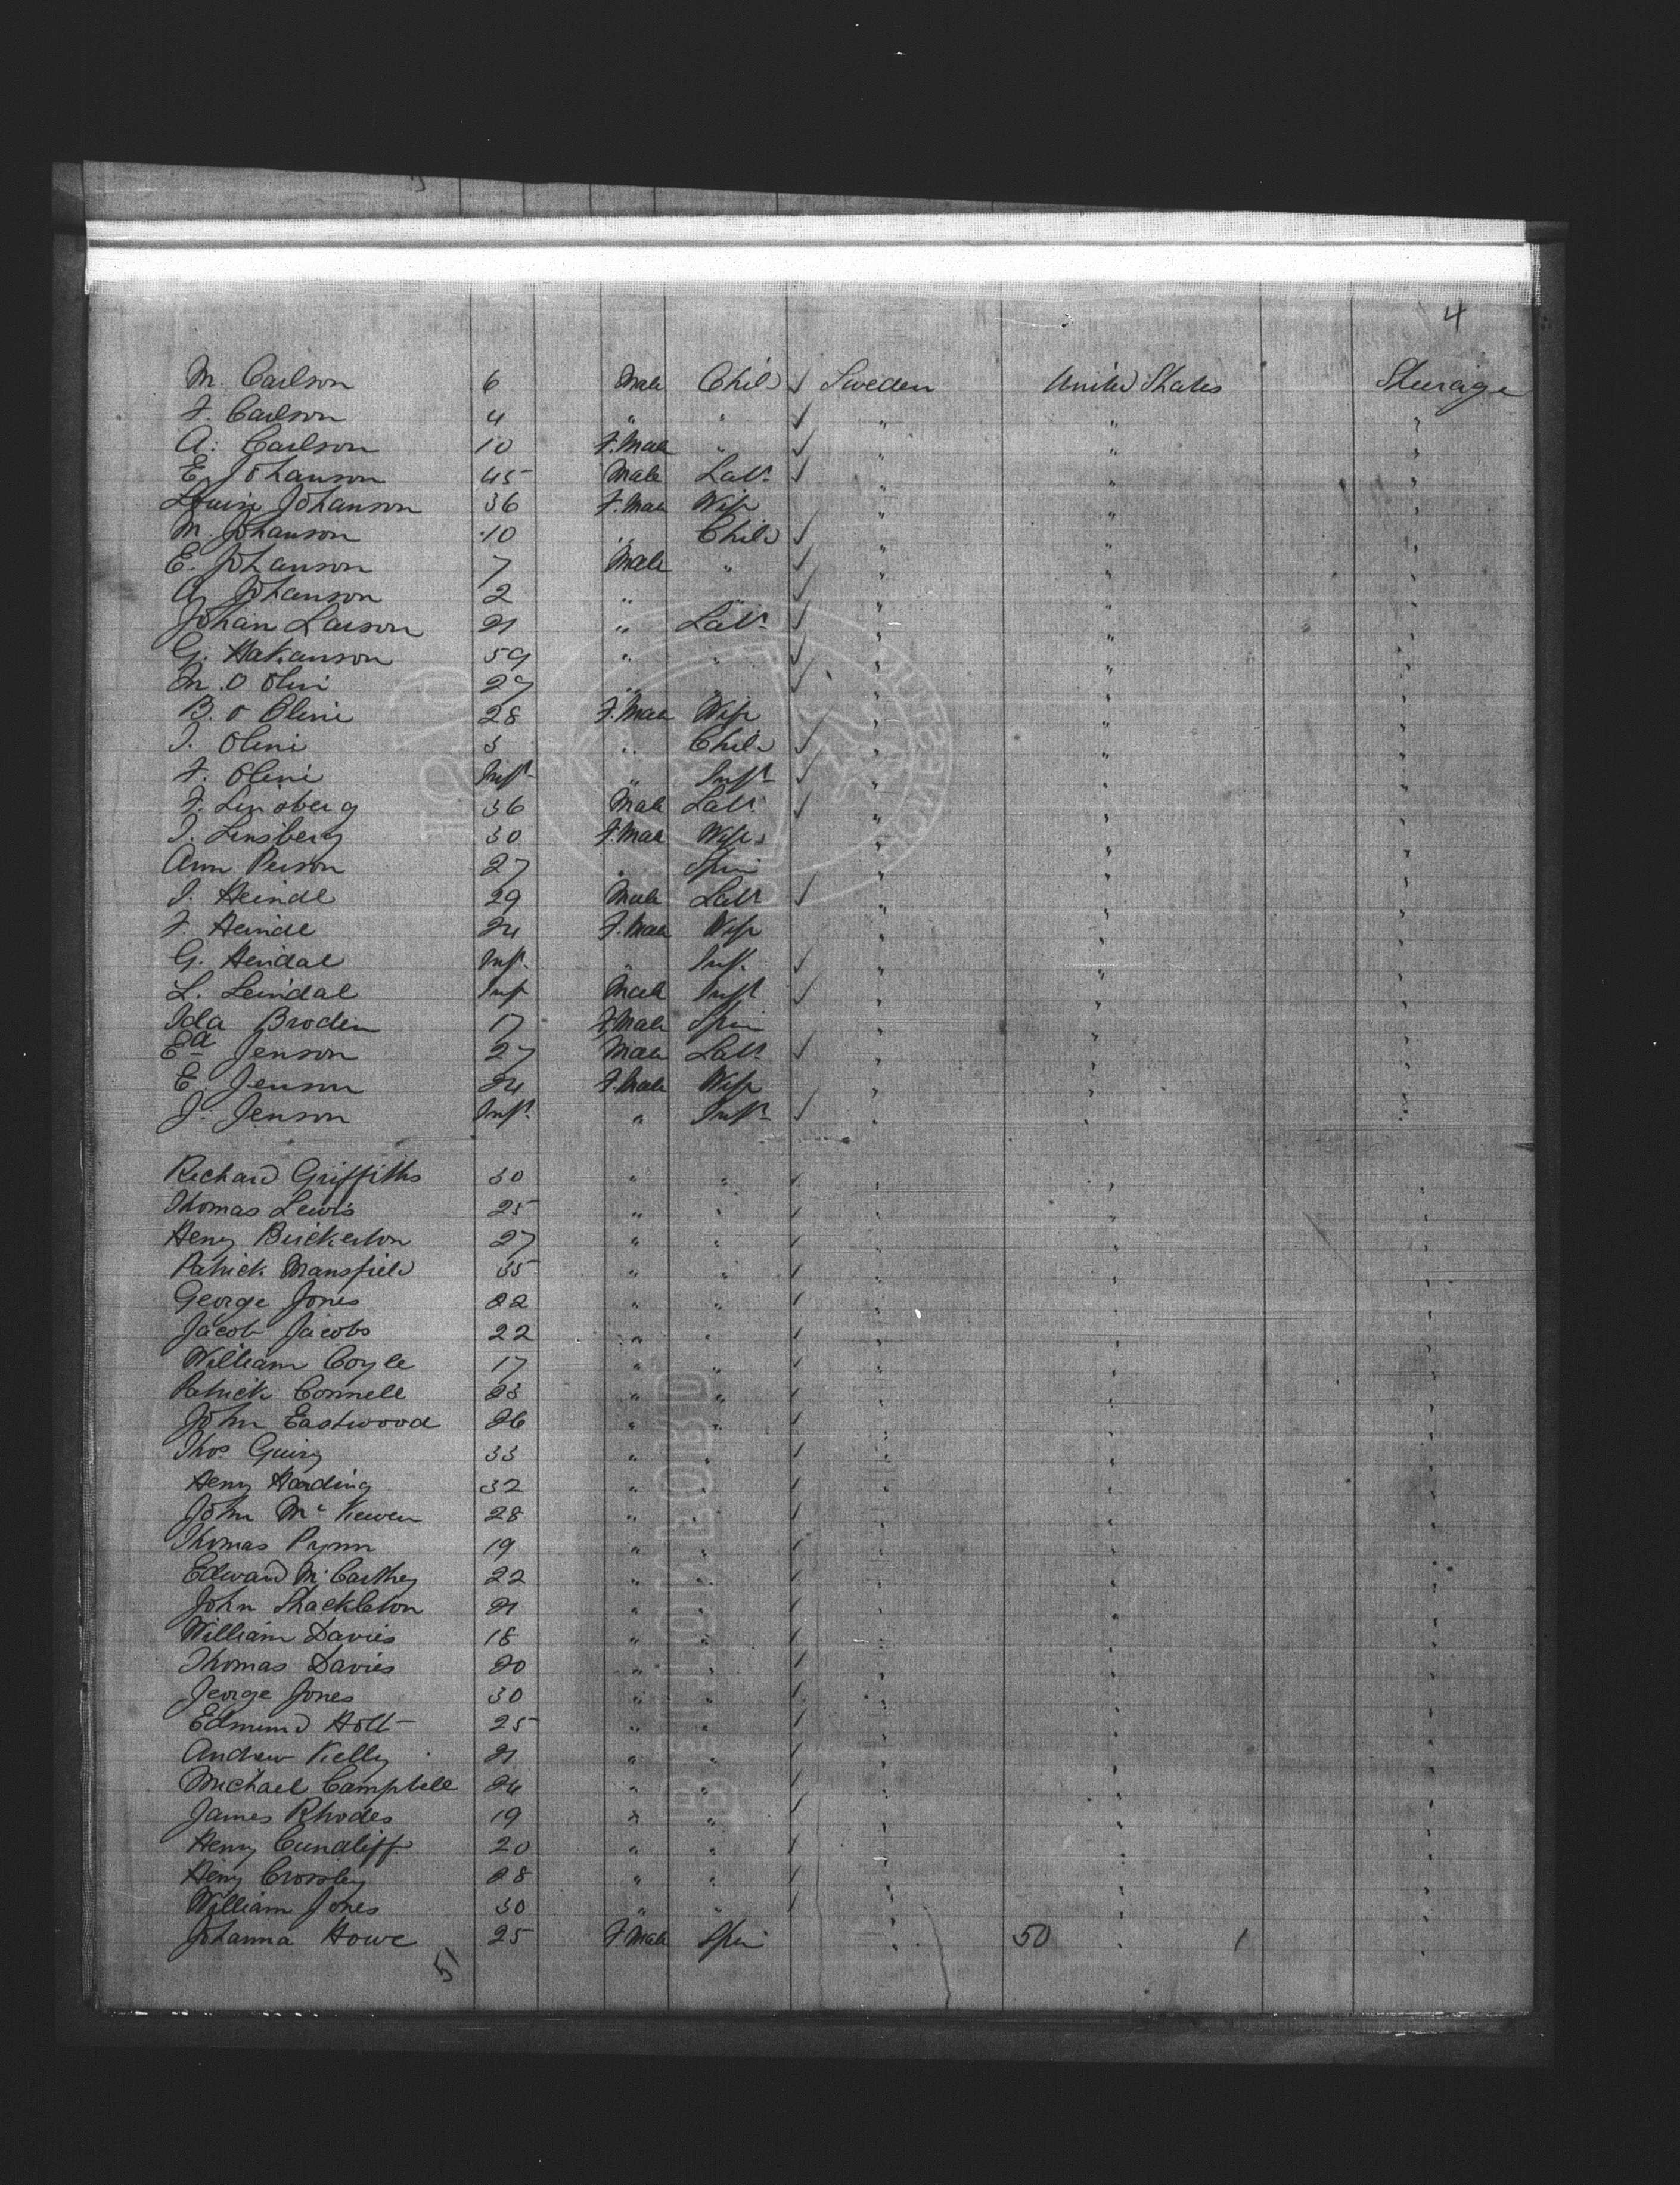 4
M. Carlson 6 Male Child ✓ Sweden United States Steerage
F. Carlson 4 " " ✓ " " "
A. Carlson 10 F.Male " ✓ " " "
E. Johanson 45 Male Labr ✓ " " "
Louise Johanson 36 F.Male Wife " " "
M. Johanson 10 " Child ✓ " " "
E. Johanson 7 Male " ✓ " " "
A. Johanson 2 " " ✓ " " "
Johan Larson 21 " Labr ✓ " " "
G. Hakanson 59 " " ✓ " " "
M. O Olini 27 " ✓ " " "
B. O Olini 28 F.Male Wife " " "
I. Olini 3 " Child ✓ " " "
F. Olini Inft " Inft ✓ " " "
F. Linsberg 36 Male Labr ✓ " " "
I. Linsberg 30 F.Male Wife " " "
Ann Person 27 " Spin " " "
I. Heindl 29 Male Labr ✓ " " "
F. Heindl 24 F.Male Wife " " "
G. Heindal Inft " Inft ✓ " " "
L. Leindal Inft Male Inft ✓ " " "
Ida Broden 17 F.Male Spin " " "
Ed Jenson 27 Male Labr ✓ " " "
E. Jenson 24 F.Male Wife " " "
J. Jenson Inft " Inft ✓ " " "
Richard Griffiths 30 " " ✓ " " "
Thomas Lewis 25 " " ✓ " " "
Henry Bickerton 27 " " ✓ " " "
Patrick Mansfield 35 " " ✓ " " "
George Jones 22 " " ✓ " " "
Jacob Jacobs 22 " " ✓ " " "
William Coyle 17 " " ✓ " " "
Patrick Connell 23 " " ✓ " " "
John Eastwood 26 " " ✓ " " "
Thos Guiry 33 " " ✓ " " "
Henry Harding 32 " " ✓ " " "
John McKewen 28 " " ✓ " " "
Thomas Prynn 19 " " ✓ " " "
Edward McCarthey 22 " " ✓ " " "
John Shackleton 21 " " ✓ " " "
William Davies 18 " " ✓ " " "
Thomas Davies 20 " " ✓ " " "
George Jones 30 " " ✓ " " "
Edmund Holt 25 " " ✓ " " "
Andrew Kelly 21 " " ✓ " " "
Michael Campbell 24 " " ✓ " " "
James Rhodes 19 " " ✓ " " "
Henry Cundliff 20 " " ✓ " " "
Henry Crossley 28 " " ✓ " " "
William Jones 30 " " ✓ " " "
Johanna Howe 25 F.Male Spin " 50 " 1 "
51